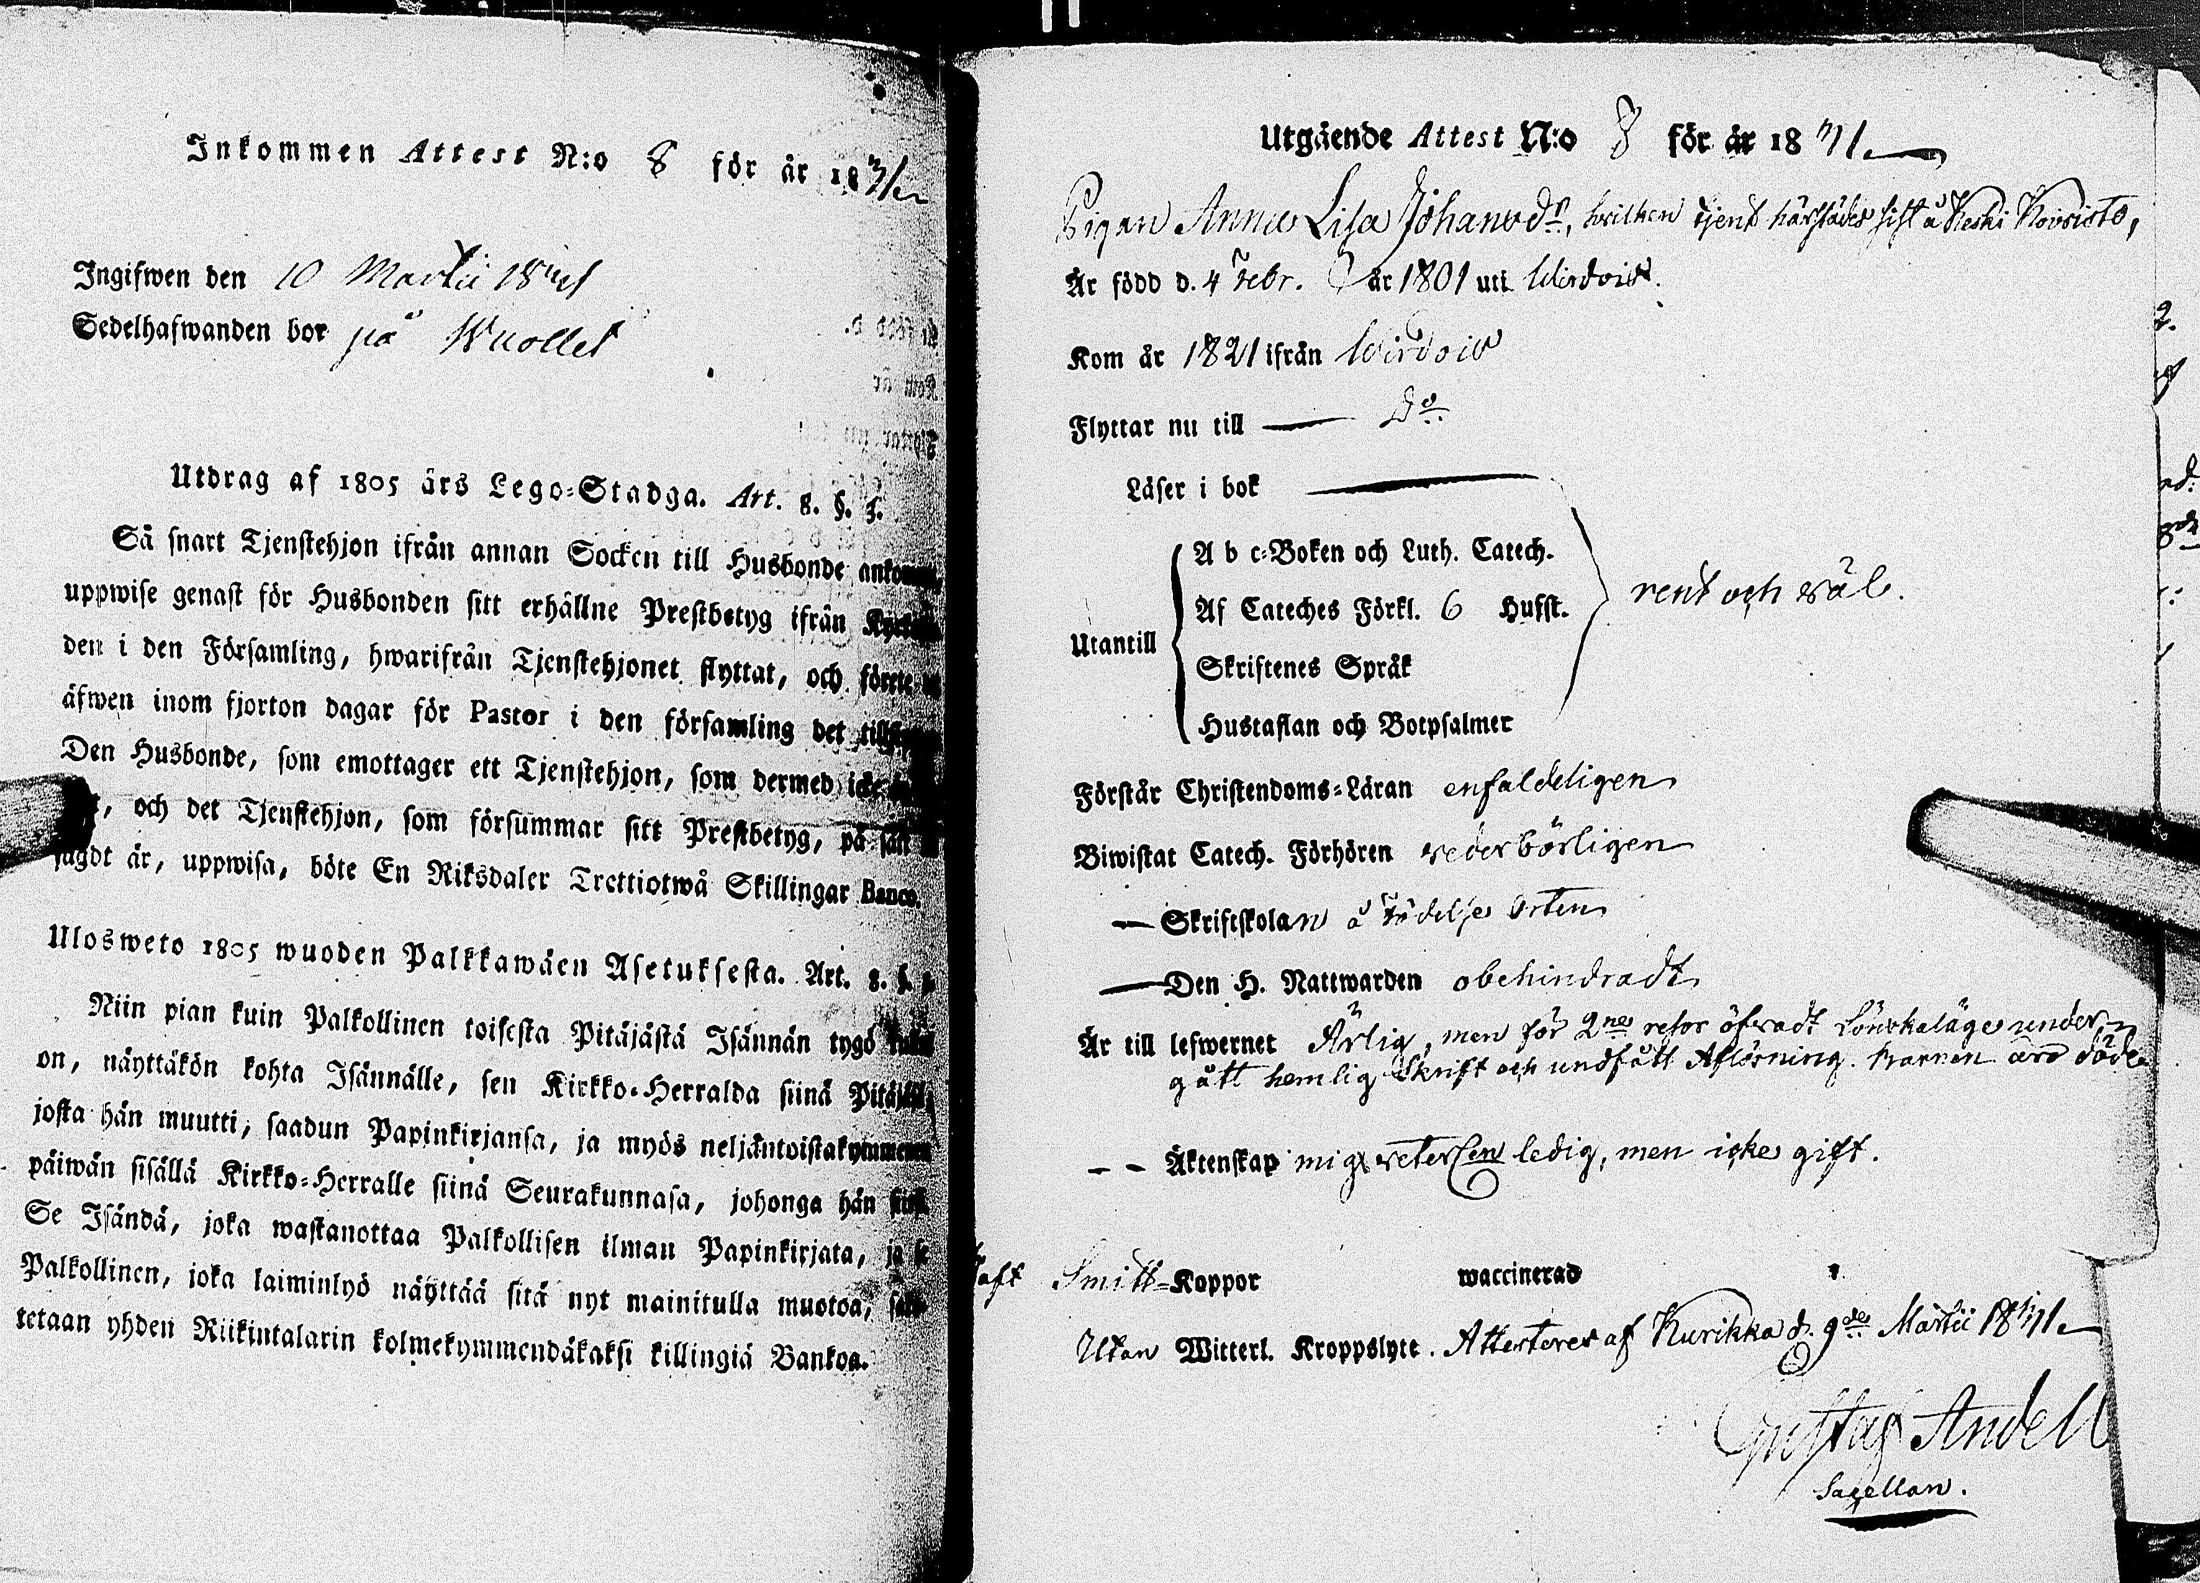 Inkommen Attest N:o 8 för år 1831
Ingifwen den 10 Martii 1831
Sedelhafwanden bor på Wuollet
Utdrag af 1805 års Lego-Stadga. Art. 8. §. 3.
Så snart Tjenstehjon ifrån annan Socken till Husbonde
uppwise genast för Husbonden sitt erhållne Prestbetyg ifrån
den i den Församling, hwarifrån Tjenstehjonet flyttat, och
äfwen inom fjorton dagar för Pastor i den församling det
Den Husbonde, som emottager ett Tjenstehjon, som dermed icke
, och det Tjenstehjon, som försummar sitt Prestbetyg, på sätt
sagdt är, uppwisa, böte En Riksdaler Trettiotwå Skillingar Banco.
Ulosweto 1805 wuoden Palkkawäen Asetuksesta. Art. 8. §.
Niin pian kuin Palkollinen toisesta Pitäjästä Isännän tygö
on, näyttäkön kohta Isännälle, sen Kirkko-Herralda siinä
josta hän muutti, saadun Papinkirjansa, ja myös neljäntoistakymmenen
päiwän sisällä Kirkko-Herralle siinä Seurakunnasa, johonga hän
Se Isändä, joka wastanottaa Palkollisen ilman Papinkirjata, ja se
Palkollinen, joka laiminlyö näyttää sitä nyt mainitulla muotoa,
tetaan yhden Riikintalarin kolmekymmendäkaksi killingiä Bankoa.
Utgående Attest N:o 8 för år 1831
Pigan Anna Lisa Johansdr, hvilken tjent härstädes sist å Keski Koivisto,
År född d. 4 Febr. år 1801 uti Wirdois.
Kom år 1821 ifrån Wirdois
Flyttar nu till — Do
Läser i bok
A b c-Boken och Luth. Catech.
Af Cateches Förkl. 6 Hufst.
rent och wäl.
Utantill
Skriftenes Språk
Hustaflan och Botpsalmer
Förstår Christendoms-Läran enfaldeligen
Biwistat Catech. Förhören wederbörligen
— Skriftskolan å födelse Orten
— Den H. Nattwarden obehindradt
Är till lefwernet Ärlig, men för 2ne resor öfvadt Lönskaläge under
gått hemlig Skrift och undfått Aflösning. barnen äro döde
— — Äktenskap mig veterligen ledig, men icke gift.
haft Smitt-Koppor waccinerad
Utan Witterl. Kroppslyte. Attesteres af Kurikka d. 9de Martii 1831
Gustaf Andell
Sacellan.